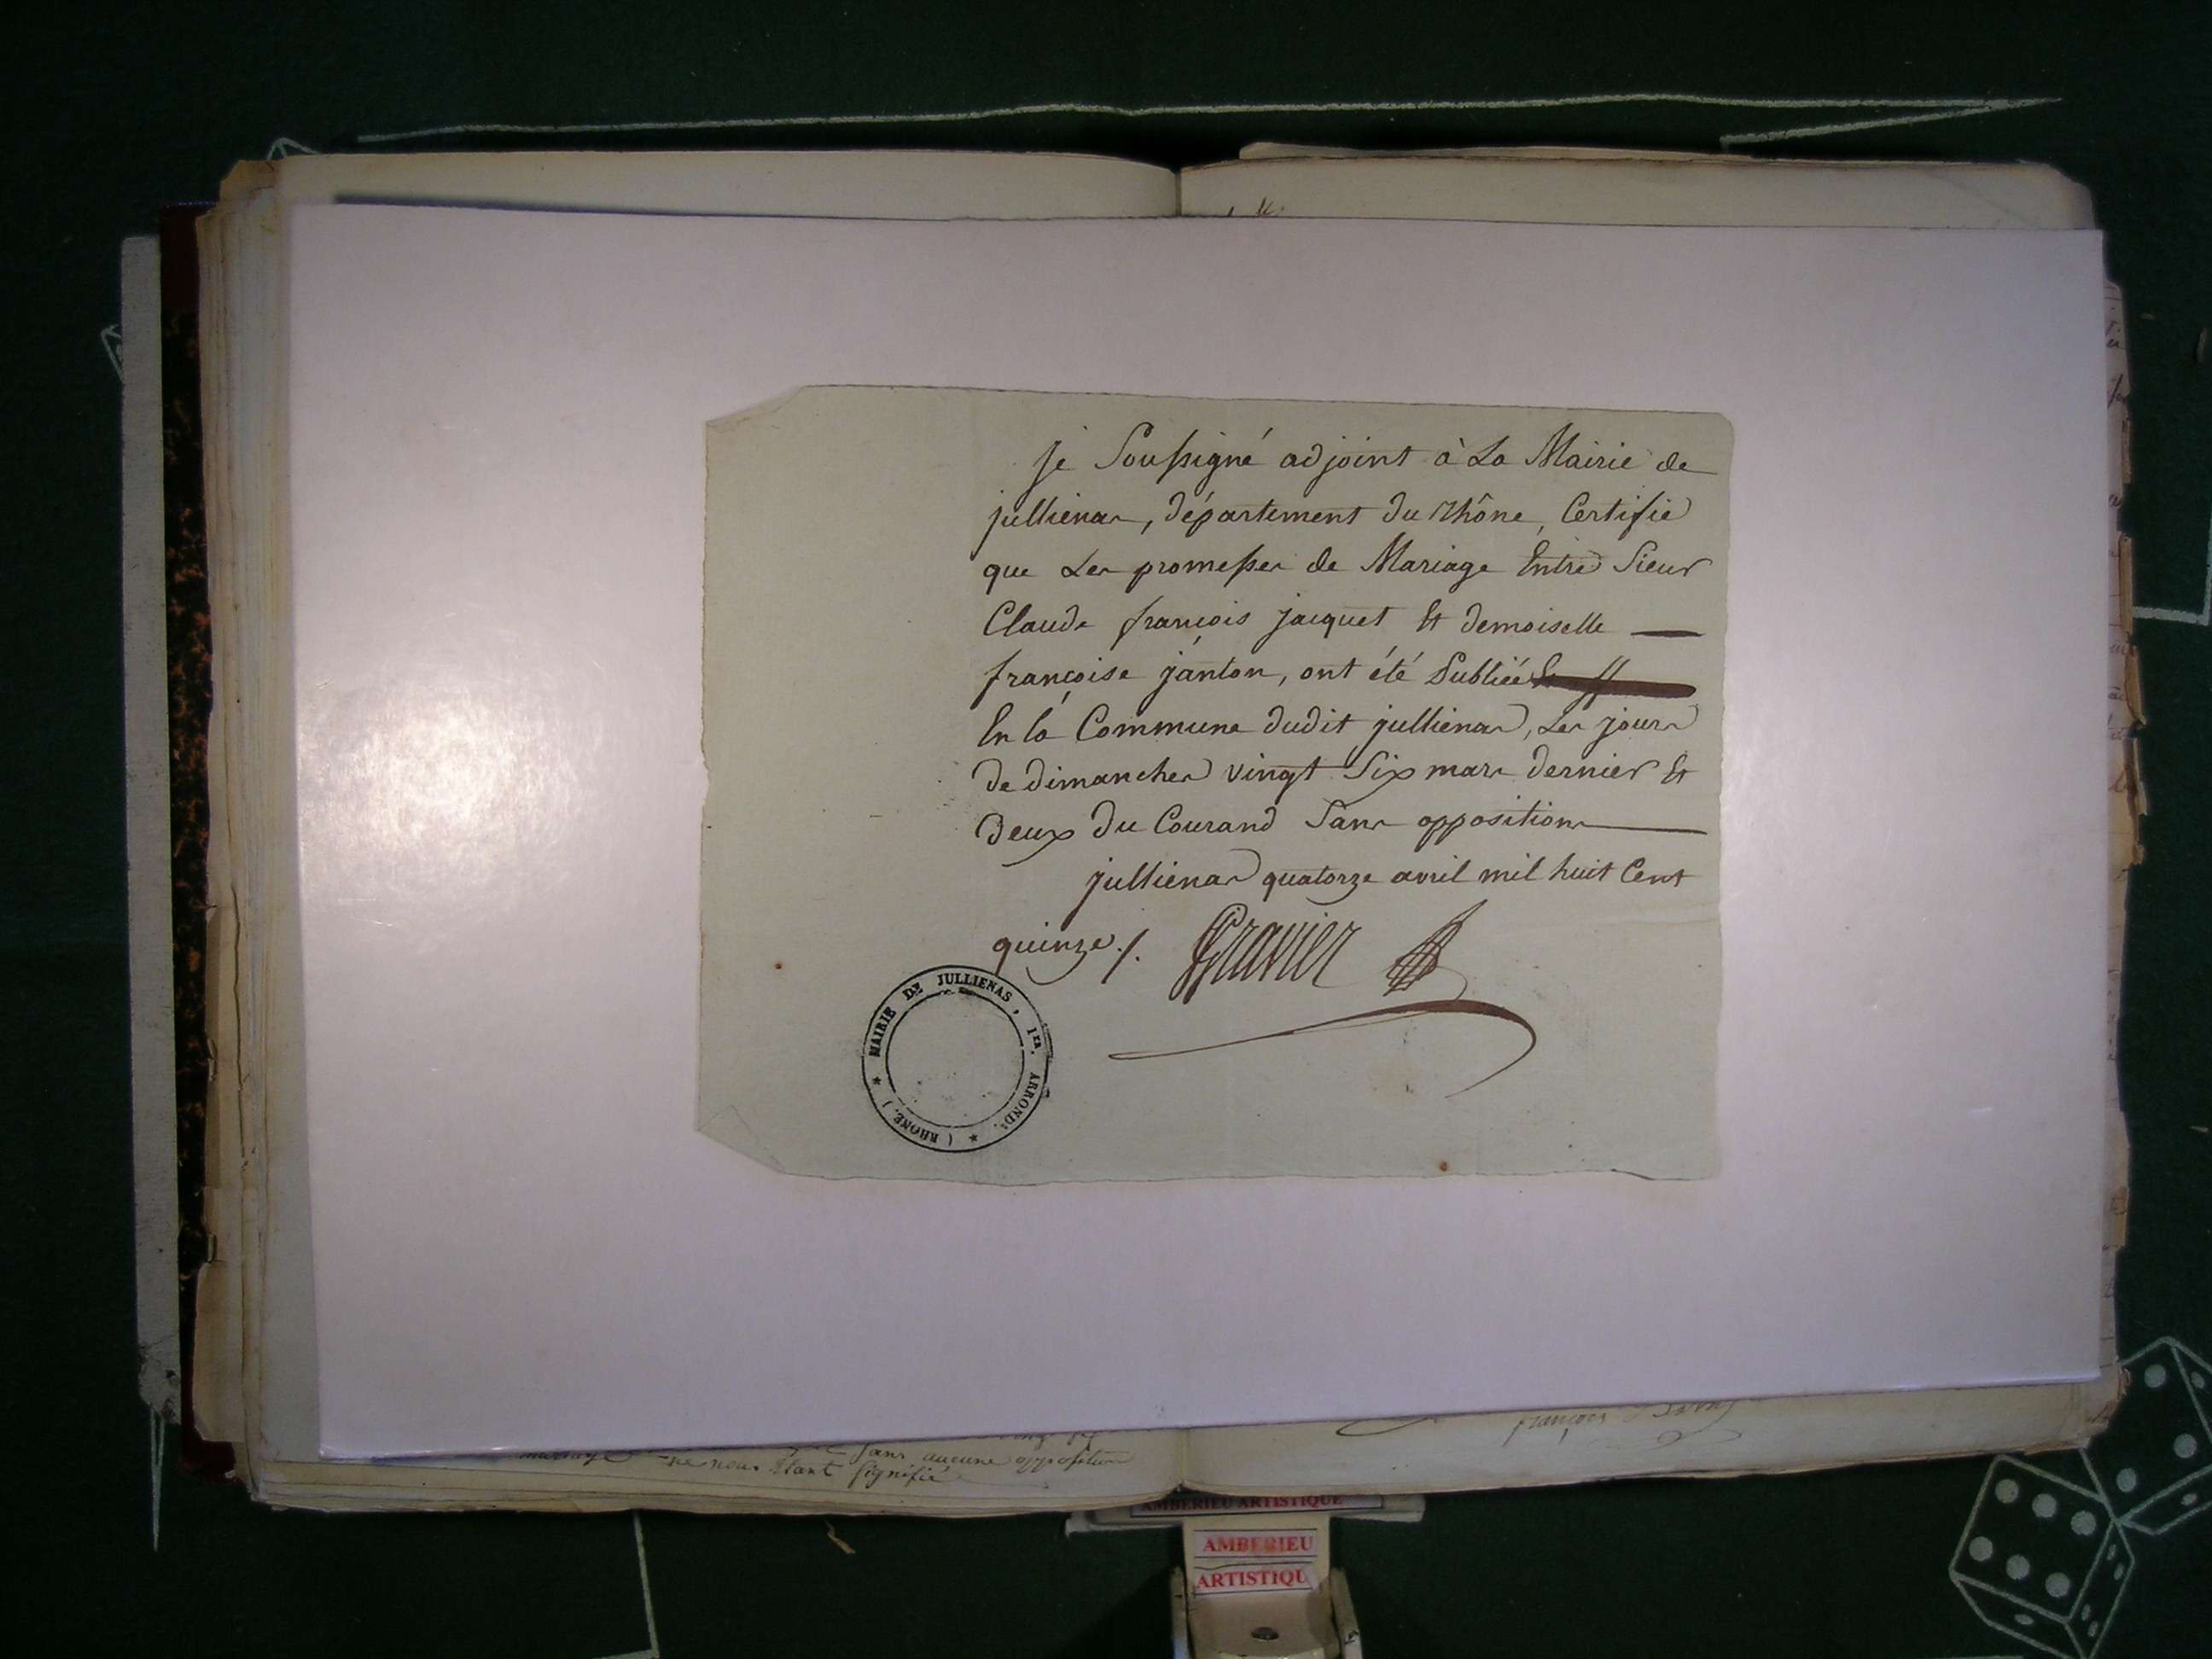 je Soussigné adjoint à La Mairie de
jullienas, département du rhône, Certifie
que Les promesses de Mariage Entre Sieur
Claude françois jacquet Et demoiselle —
françoise janton, ont été Publiées
En la Commune dudit jullienas, Les jours
de dimanches vingt Six mars dernier Et
deux du Courand Sans opposition —
jullienas quatorze avril mil huit Cent
quinze ./. Gravier
* MAIRIE DE JULLIENAS, 1er. ARRONDt. * (RHONE.)
françois
sans aucune opposition
ne nous étant signifié
AMBERIEU ARTISTIQUE
AMBERIEU
ARTISTIQU